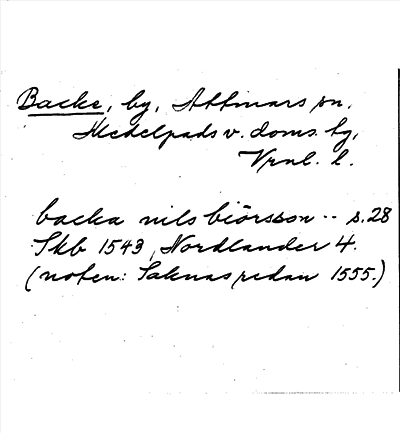 Backe, by, Attmars sn,
Medelpads v. doms. by,
Vrnl. l.
backa nils biörsson -- s. 28
Skb 1543, Nordlander 4.
(noten: Saknas redan 1555.)